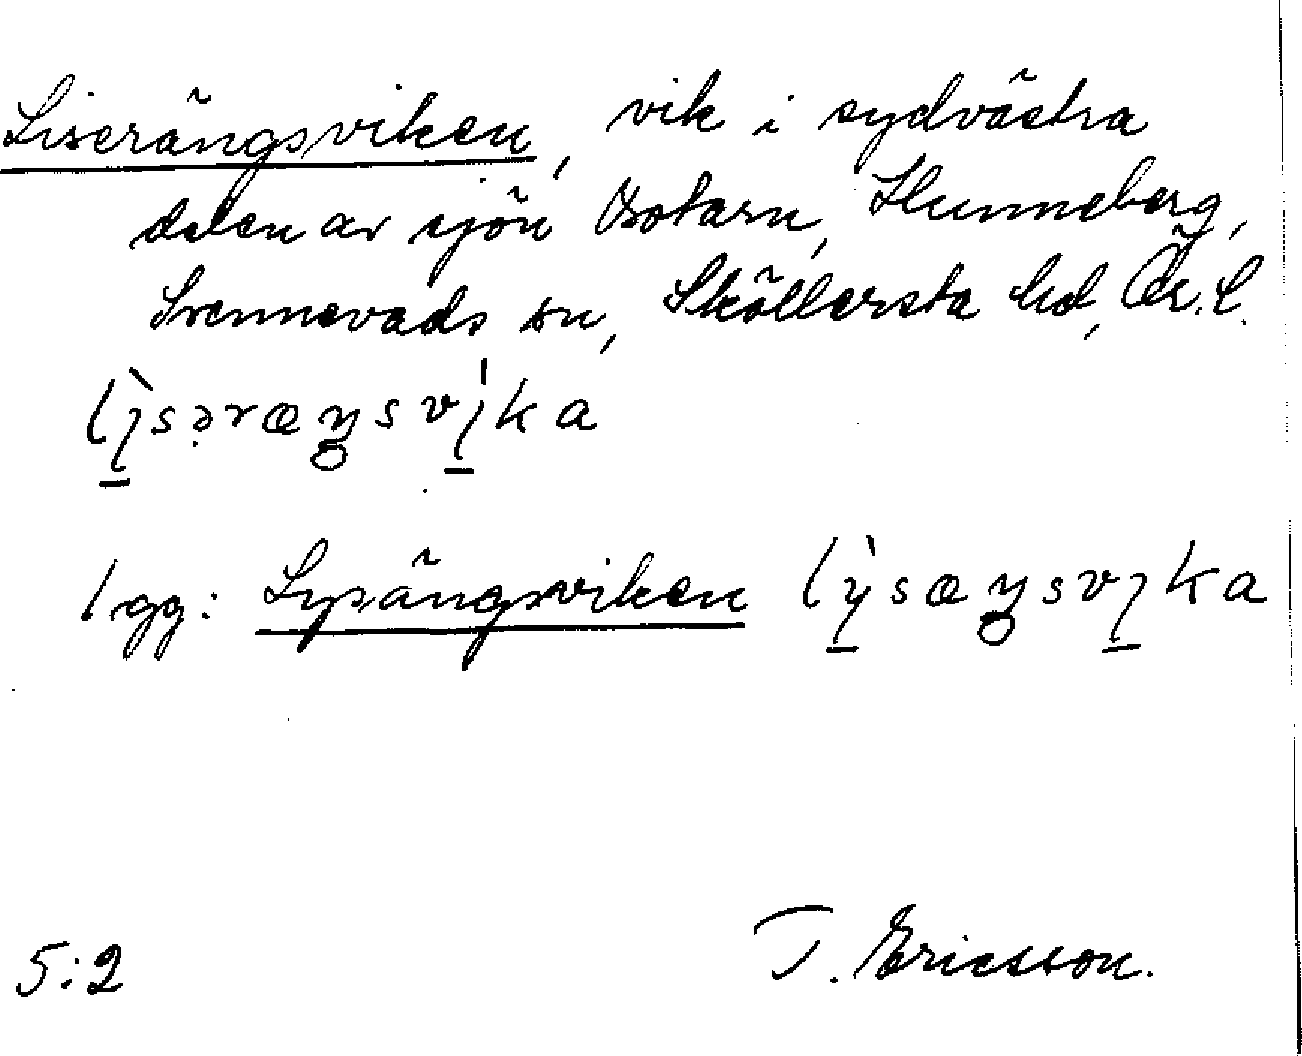 Liserängsviken, vik i sydvästra
delen av sjön Botarn, Hunneberg,
Svennevads sn, Sköllersta hd, Ör. l.
lìsəræŋsvíka
/ gg: Lysängsviken lỳsæŋsvika
5:2 T. Ericsson.